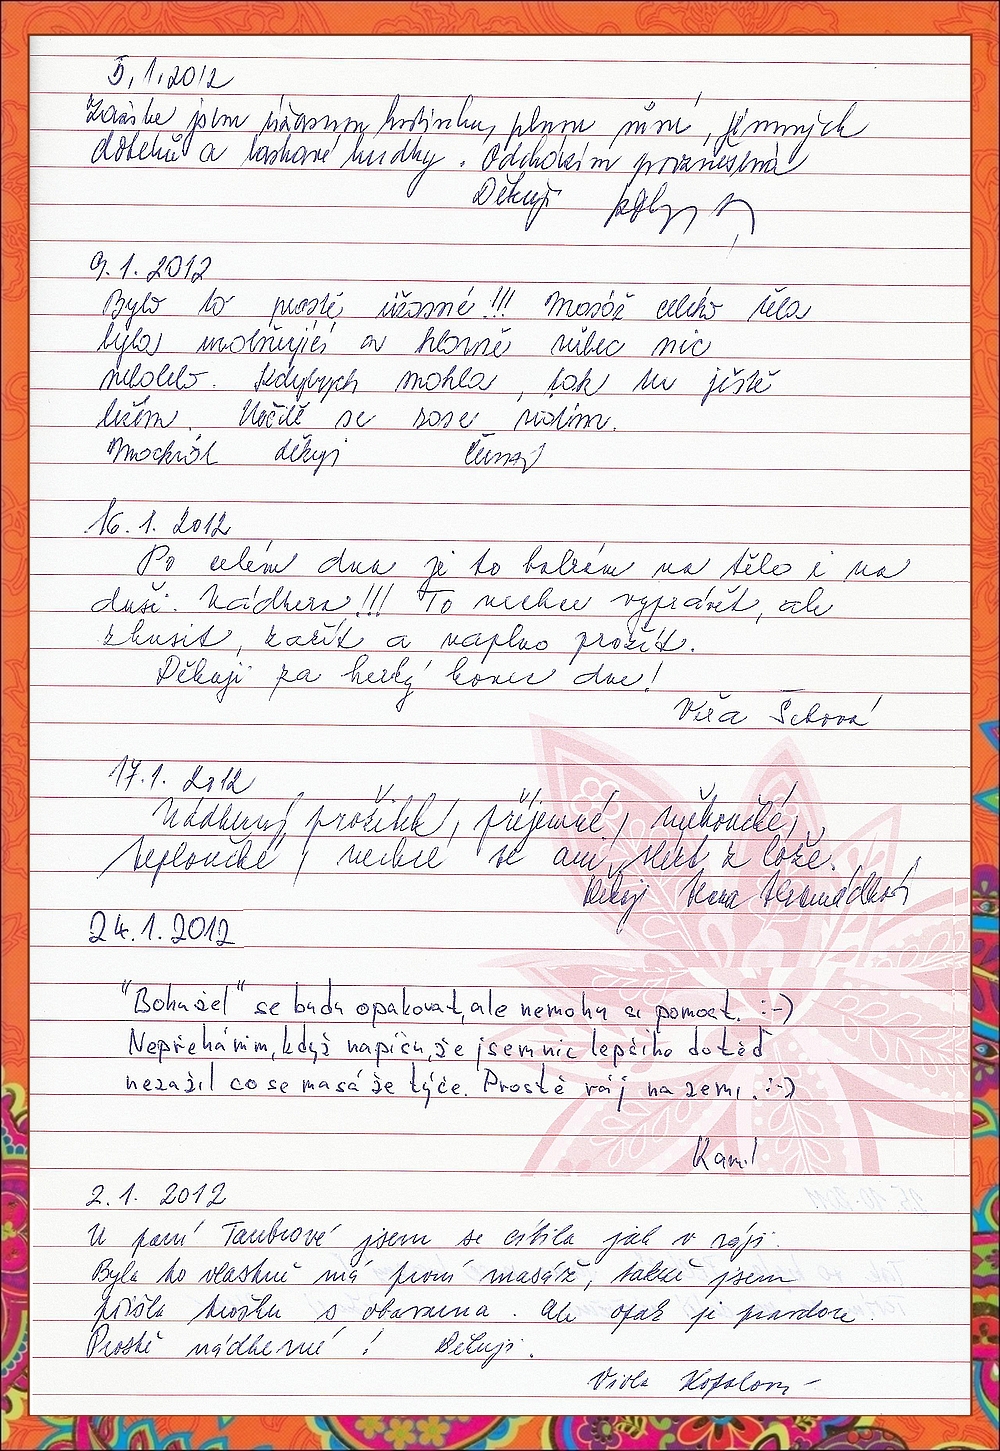 5.1.2012
Zažila jsem úžasnou hodinku, plnou vůní, jemných
doteků a laskavé hudby. Odcházím povznešená
Děkuji
9.1.2012
Bylo to prostě úžasné!!! Masáž celého těla
byla uvolňující a hlavně vůbec nic
nebolelo. Kdybych mohla, tak tu ještě
ležím. Určitě se zase vrátím.
Mockrát děkuji
16.1.2012
Po celém dnu je to balzám na tělo i na
duši. Nádhera!!! To nechce vyprávět, ale
zkusit, zažít a naplno prožít.
Děkuji za hezký konec dne!
Věra
17.1.2012
Nádherný prožitek, příjemné, měkoučké,
teploučké, nechce se ani vstát z lože.
Děkuji Hana
24.1.2012
"Bohužel" se budu opakovat, ale nemohu si pomoct. :-)
Nepřeháním, když napíšu, že jsem nic lepšího doteď
nezažil co se masáže týče. Prostě ráj na zemi. :-)
Kamil
2.1. 2012
U paní Taubrové jsem se cítila jak v ráji.
Byla to vlastně má první masáž, takže jsem
přišla trošku s obavama. Ale opak je pravdou.
Prostě nádherné! Děkuji.
Viola